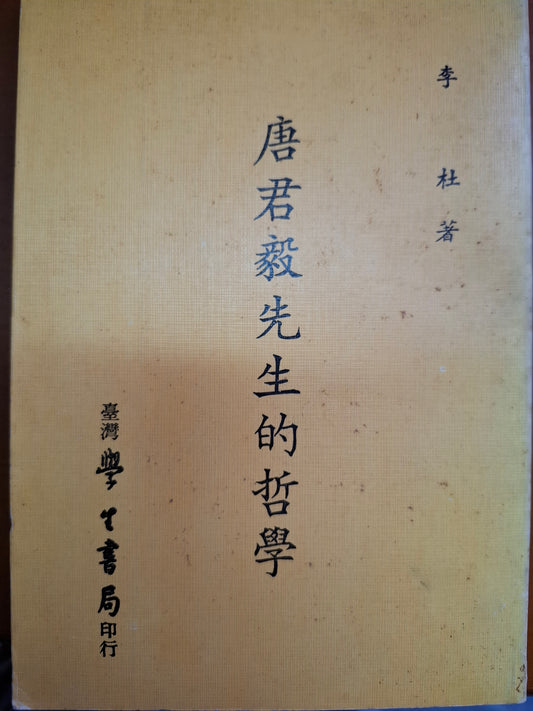 李杜著
唐君毅先生的哲學
臺灣學生書局印行